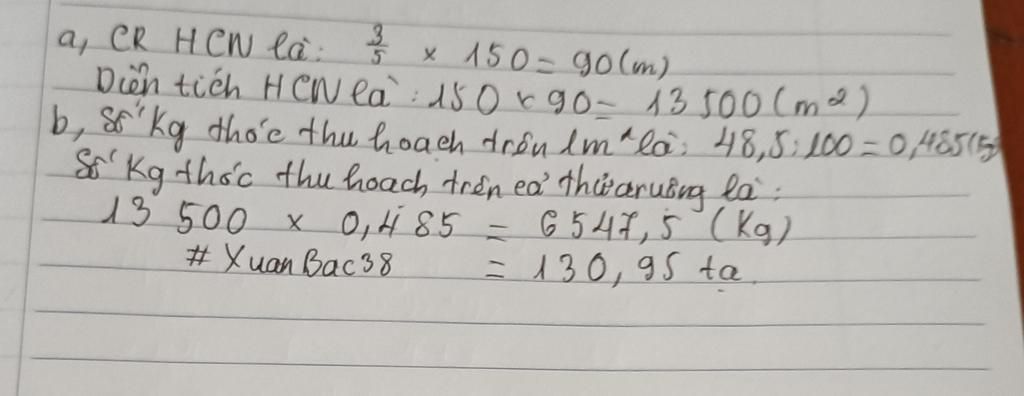 a, CR HCN là: 3/5 × 150 = 90(m)
Diện tích HCN là: 150 × 90 = 13 500 (m²)
b, Số Kg thóc thu hoạch trên 1m² là: 48,5 : 100 = 0,485(kg)
Số Kg thóc thu hoạch trên cả thửa ruộng là:
13 500 × 0,485 = 6547,5 (Kg)
# XuanBac38 = 130,95 tạ